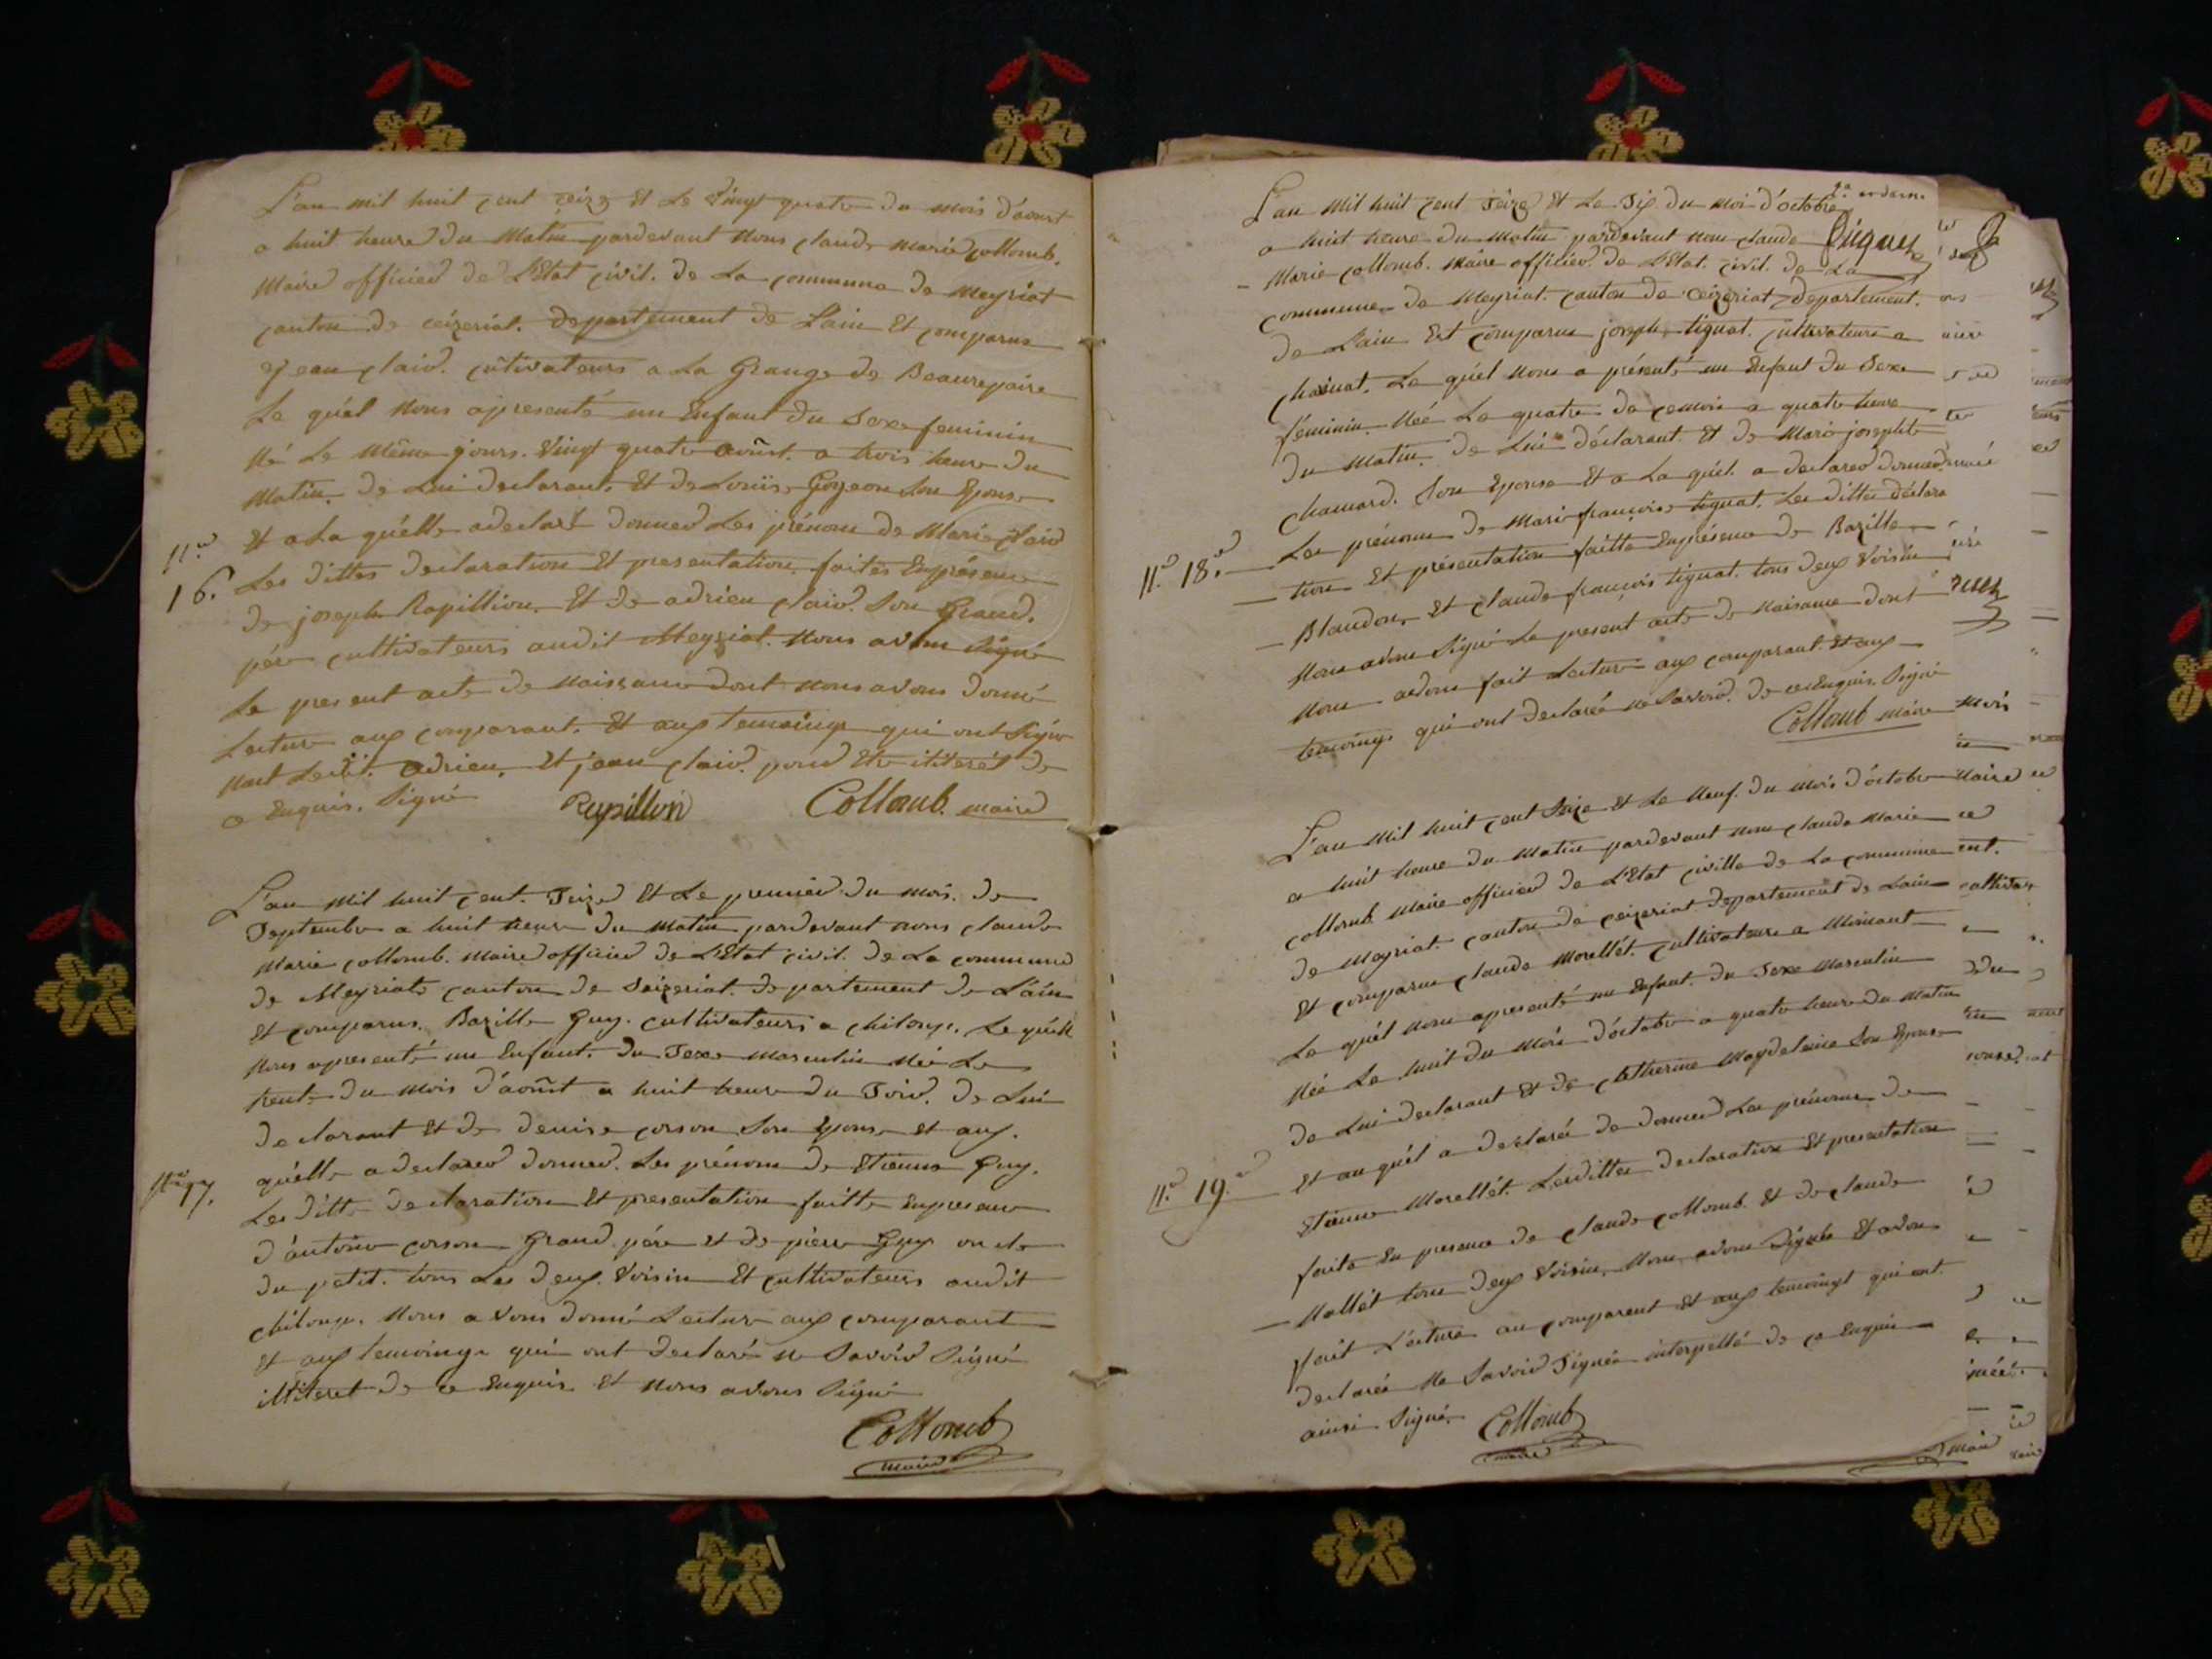 L'an mil huit cent seize et le vingt quatre du mois d'aoust
a huit heure du matin pardevant nous claude marie collomb.
maire officier de L'Etat civil. de La commune de meyriat
canton de ceizeriat. departement de L'ain Et comparus
jean clair. cultivateurs a La Grange de Beaurepaire
Le quél nous apresenté un Enfant du sexe feminin
né Le même jours. vingt quatre août. a trois heure du
matin. de Lui declarant. Et de Loüise Goyeon son Epouse
Et a La quélle adeclaré donner Les prénom de Marie Clair
N.o 16. Les dittes declaration Et presentation faites Enprésence
de joseph Rapillion. Et de adrien clair. son Grand.
pére cultivateurs audit Meyriat. nous avons signé
Le present acte de naissance dont nous avons donné
Lecture aux comparant. Et aux temoings qui ont signé
non Ledit. adrien. Et jean clair. pour Etre ititerét de
ce Enquis. signé Rapillon Collomb. maire
L'an mil huit cent. seize Et Le premier du mois. de
septembre a huit heure du matin pardevant nous claude
marie collomb. maire officier de L'Etat civil. de La commune
de Meyriat canton de seizeriat. departement de L'ain
Et comparus. Bazille Guy. cultivateurs a chiloup. Le quéll
nous apresenté un Enfant. du sexe masculin née Le
trente du mois d'août a huit heure du soir. de Lui
declarant Et de denise corson son Epouse Et aux.
quélle a declarer donner. Les prénom de Etienne Guy.
N.o 17. Les ditte declaration Et presentation faitte Enpresence
d'antoine corson Grand pére Et de piérre Guy oncle
du petit. tous Les deux. voisin Et cultivateurs audit
chiloup. nous avons donné Lecture aux comparant
Et aux temoings qui ont declaré ne savoir signé
illiteret de ce Enquis Et nous avons signé
Collomb
maire
L'an mil huit cent seize Et Le six du moi d'octobre
a huit heure du matin pardevant nous claude
Marie collomb. maire officier. de L'Etat. civil. de La
commune de Meyriat. canton de ceizeriat departement.
de L'ain Est comparus joseph tignat. cultivateurs a
chavuat. Le quél nous a présenté un Enfant du sexe
féminin. née Le quatre de cemois a quatre heure
du matin. de Lui déclarant. Et de Marie josephte
chanard. son Epouse Et a La quél. a declarer donner
Les prénoms de Marie françoise tignat. Les dittes déclara
N.o 18. tion Et présentation faitte Enprésence de Bazille
Blandon Et claude françois tignat. tous deux voisin
nous avons signé Le present acte de naissance dont
nous avons fait Lecture aux comparant. Et aux
temoings qui ont declaré ne savoir. de ce Enquis. signé
Collomb maire
L'an mil huit cent seize Et Le neuf. du mois d'octobre
a huit heure du matin pardevant nous claude marie
collomb maire officier de L'Etat civille de La commune
de meyriat. canton de ceizeriat departement de L'ain
Et comparus claude morellét. cultivateurs a
Le quél nous apresenté un Enfant. du sexe masculin
née Le huit du mois d'octobre a quatre heure du matin
de Lui declarant Et de catherine magdeleine son Epouse
Et au quél a declaré de donner Les prénoms de
N.o 19. Etienne Morellét. Lesdittes declaration Et presentation
faite En presence de claude collomb Et de claude
Mallét tous deux voisin. nous avons signé Et avons
fait Lecture au comparent Et aux temoingt qui ont.
declaré ne savoir signér interpellé de ce Enquis
ainsi signé. Collomb
maire